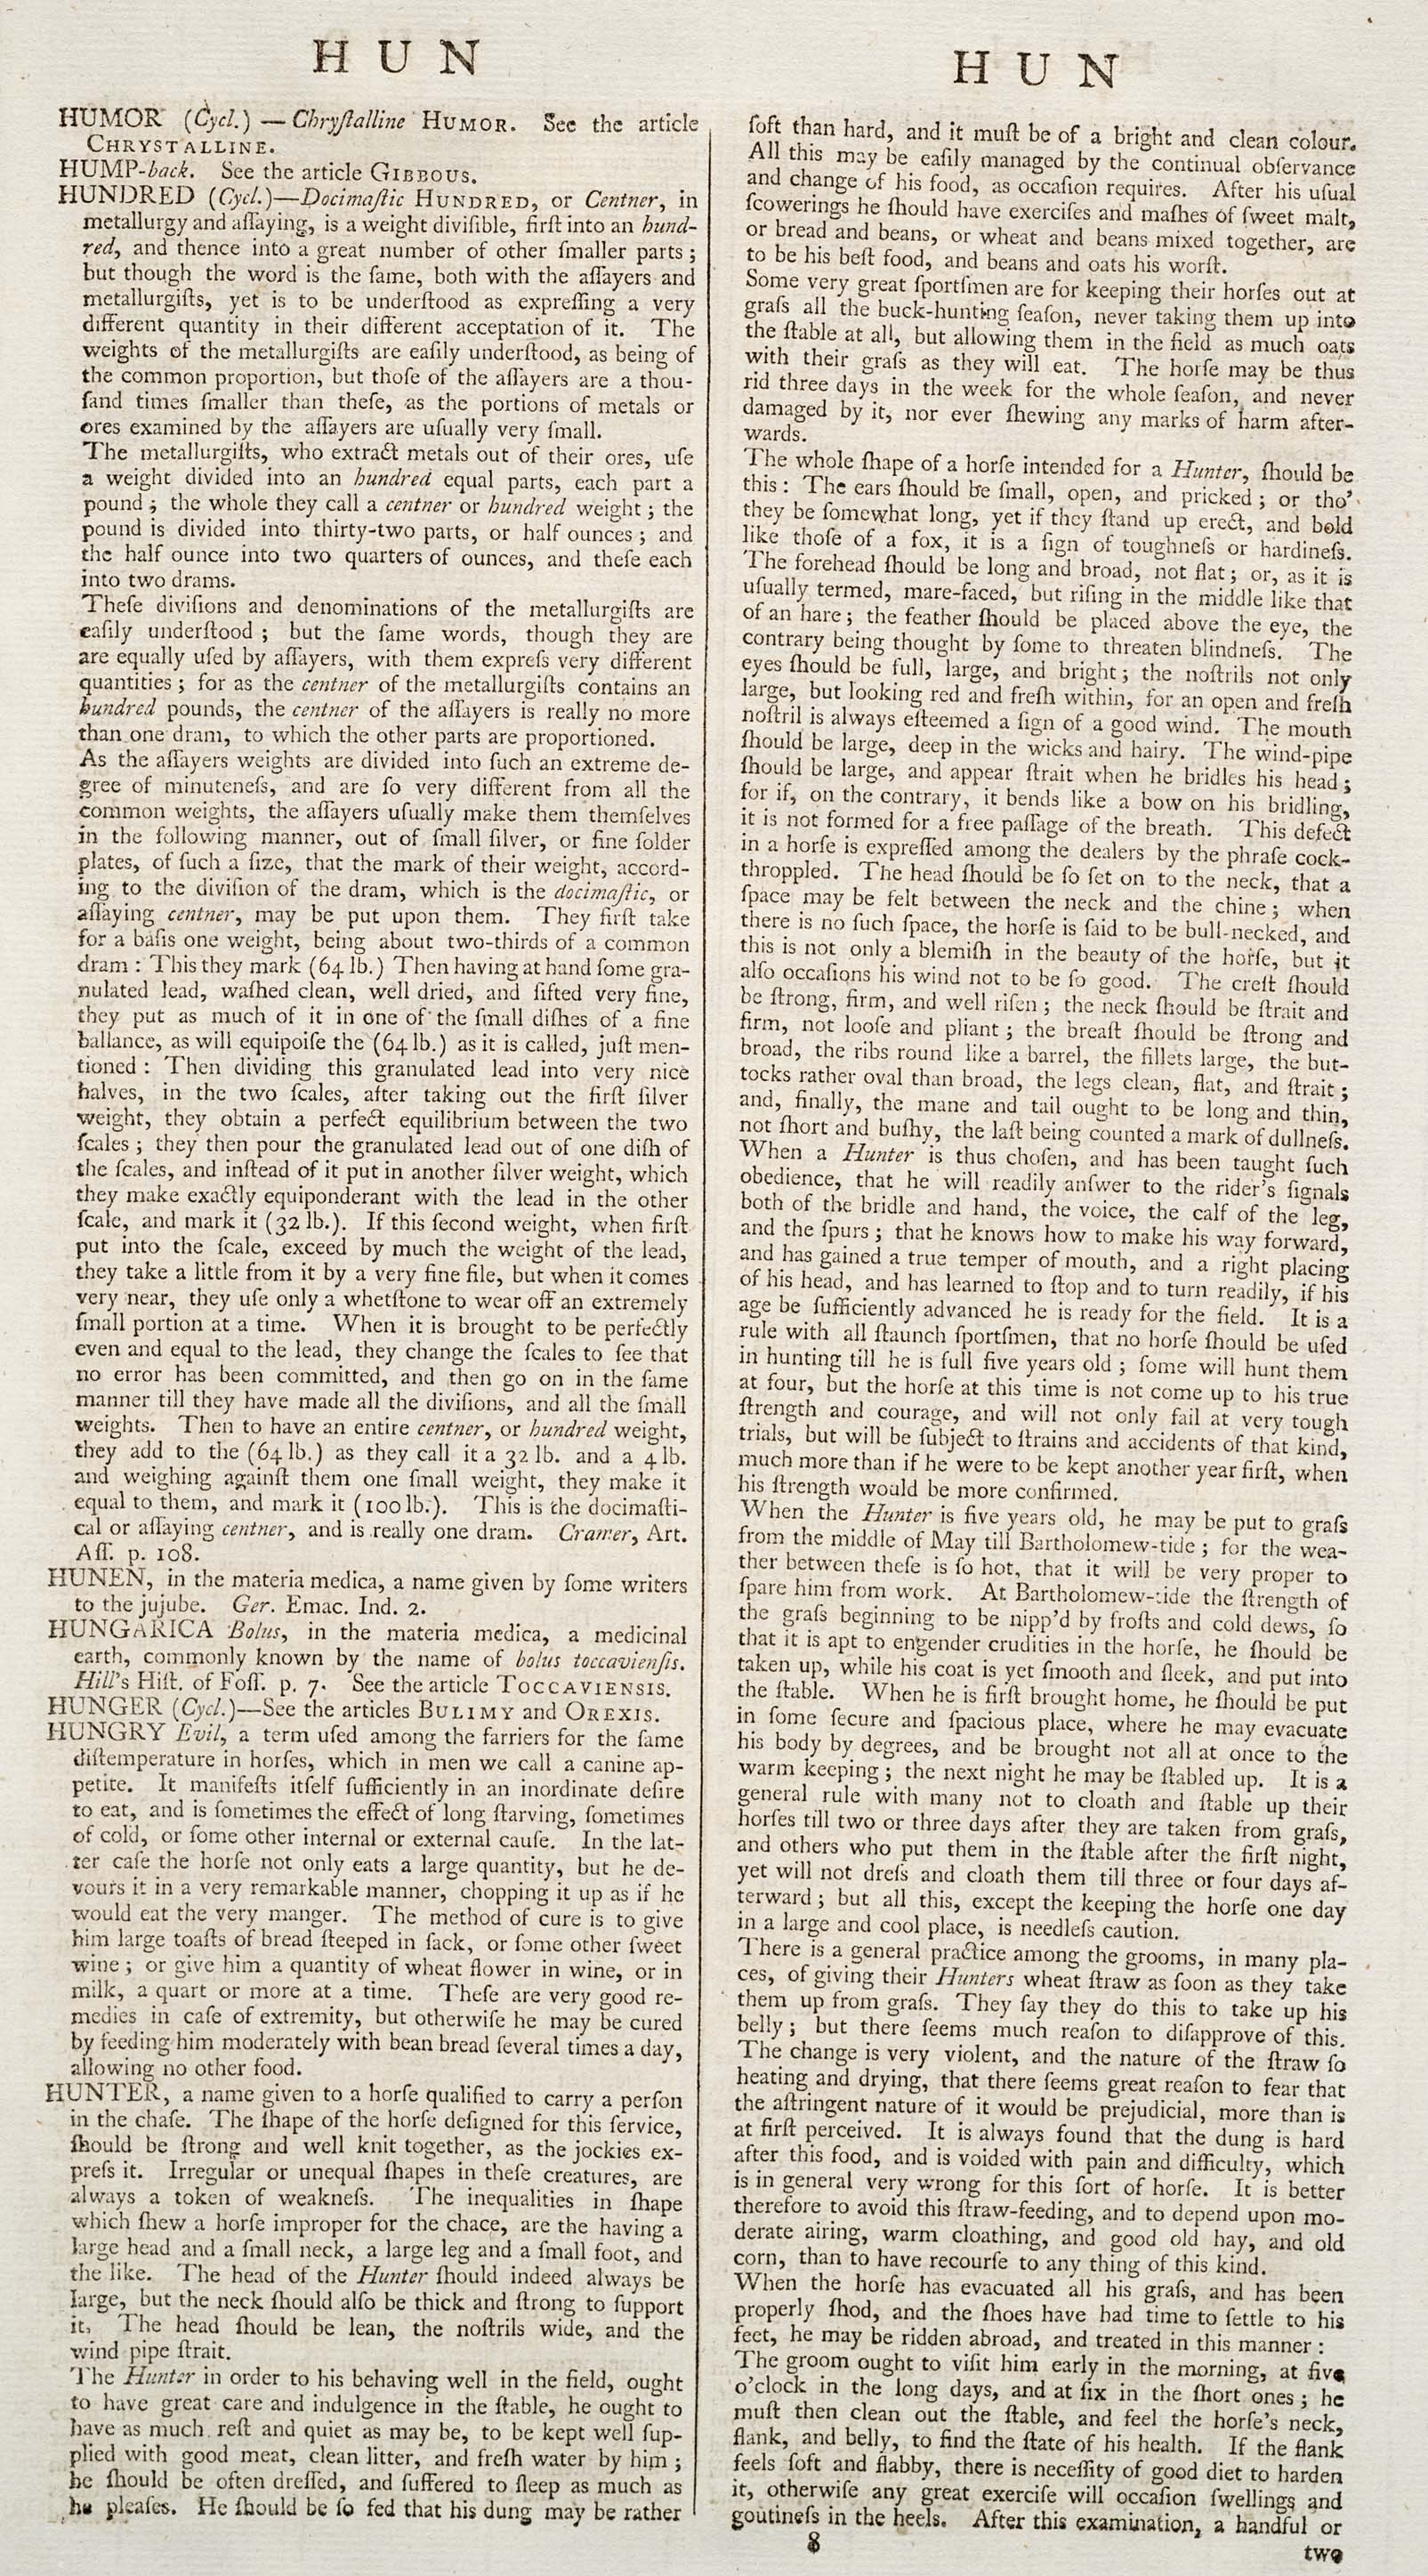 H U N
HUMOR (Cycl.) — Chryſtalline HUMOR. See the article
CHRYSTALLINE.
HUMP-back. See the article GIBBOUS.
HUNDRED (Cycl.)—Docimaſtic HUNDRED, or Centner, in
metallurgy and aſſaying, is a weight diviſible, firſt into an hund-
red, and thence into a great number of other ſmaller parts;
but though the word is the ſame, both with the aſſayers and
metallurgiſts, yet is to be underſtood as expreſſing a very
different quantity in their different acceptation of it. The
weights of the metallurgiſts are eaſily underſtood, as being of
the common proportion, but thoſe of the aſſayers are a thou-
ſand times ſmaller than theſe, as the portions of metals or
ores examined by the aſſayers are uſually very ſmall.
The metallurgiſts, who extract metals out of their ores, uſe
a weight divided into an hundred equal parts, each part a
pound; the whole they call a centner or hundred weight; the
pound is divided into thirty-two parts, or half ounces; and
the half ounce into two quarters of ounces, and theſe each
into two drams.
Theſe diviſions and denominations of the metallurgiſts are
eaſily underſtood; but the ſame words, though they are
are equally uſed by aſſayers, with them expreſs very different
quantities; for as the centner of the metallurgiſts contains an
hundred pounds, the centner of the aſſayers is really no more
than one dram, to which the other parts are proportioned.
As the aſſayers weights are divided into ſuch an extreme de-
gree of minuteneſs, and are ſo very different from all the
common weights, the aſſayers uſually make them themſelves
in the following manner, out of ſmall ſilver, or fine ſolder
plates, of ſuch a ſize, that the mark of their weight, accord-
ing to the diviſion of the dram, which is the docimaſtic, or
aſſaying centner, may be put upon them. They firſt take
for a baſis one weight, being about two-thirds of a common
dram: This they mark (64 lb.) Then having at hand ſome gra-
nulated lead, waſhed clean, well dried, and ſifted very fine,
they put as much of it in one of the ſmall diſhes of a fine
ballance, as will equipoiſe the (64 lb.) as it is called, juſt men-
tioned: Then dividing this granulated lead into very nice
halves, in the two ſcales, after taking out the firſt ſilver
weight, they obtain a perfect equilibrium between the two
ſcales; they then pour the granulated lead out of one diſh of
the ſcales, and inſtead of it put in another ſilver weight, which
they make exactly equiponderant with the lead in the other
ſcale, and mark it (32 lb.). If this ſecond weight, when firſt
put into the ſcale, exceed by much the weight of the lead,
they take a little from it by a very fine file, but when it comes
very near, they uſe only a whetſtone to wear off an extremely
ſmall portion at a time. When it is brought to be perfectly
even and equal to the lead, they change the ſcales to ſee that
no error has been committed, and then go on in the ſame
manner till they have made all the diviſions, and all the ſmall
weights. Then to have an entire centner, or hundred weight,
they add to the (64 lb.) as they call it a 32 lb. and a 4 lb.
and weighing againſt them one ſmall weight, they make it
equal to them, and mark it (100 lb.). This is the docimaſti-
cal or aſſaying centner, and is really one dram. Cramer, Art.
Aſſ. p. 108.
HUNEN, in the materia medica, a name given by ſome writers
to the jujube. Ger. Emac. Ind. 2.
HUNGARICA Bolus, in the materia medica, a medicinal
earth, commonly known by the name of bolus toccavienſis.
Hill's Hiſt. of Foſſ. p. 7. See the article TOCCAVIENSIS.
HUNGER (Cycl.)—See the articles BULIMY and OREXIS.
HUNGRY Evil, a term uſed among the farriers for the ſame
diſtemperature in horſes, which in men we call a canine ap-
petite. It manifeſts itſelf ſufficiently in an inordinate deſire
to eat, and is ſometimes the effect of long ſtarving, ſometimes
of cold, or ſome other internal or external cauſe. In the lat-
ter caſe the horſe not only eats a large quantity, but he de-
vours it in a very remarkable manner, chopping it up as if he
would eat the very manger. The method of cure is to give
him large toaſts of bread ſteeped in ſack, or ſome other ſweet
wine; or give him a quantity of wheat flower in wine, or in
milk, a quart or more at a time. Theſe are very good re-
medies in caſe of extremity, but otherwiſe he may be cured
by feeding him moderately with bean bread ſeveral times a day,
allowing no other food.
HUNTER, a name given to a horſe qualified to carry a perſon
in the chaſe. The ſhape of the horſe deſigned for this ſervice,
ſhould be ſtrong and well knit together, as the jockies ex-
preſs it. Irregular or unequal ſhapes in theſe creatures, are
always a token of weakneſs. The inequalities in ſhape
which ſhew a horſe improper for the chace, are the having a
large head and a ſmall neck, a large leg and a ſmall foot, and
the like. The head of the Hunter ſhould indeed always be
large, but the neck ſhould alſo be thick and ſtrong to ſupport
it. The head ſhould be lean, the noſtrils wide, and the
wind pipe ſtrait.
The Hunter in order to his behaving well in the field, ought
to have great care and indulgence in the ſtable, he ought to
have as much reſt and quiet as may be, to be kept well ſup-
plied with good meat, clean litter, and freſh water by him;
he ſhould be often dreſſed, and ſuffered to ſleep as much as
he pleaſes. He ſhould be ſo fed that his dung may be rather
H U N
ſoft than hard, and it muſt be of a bright and clean colour.
All this may be eaſily managed by the continual obſervance
and change of his food, as occaſion requires. After his uſual
ſcowerings he ſhould have exerciſes and maſhes of ſweet malt,
or bread and beans, or wheat and beans mixed together, are
to be his beſt food, and beans and oats his worſt.
Some very great ſportſmen are for keeping their horſes out at
graſs all the buck-hunting ſeaſon, never taking them up into
the ſtable at all, but allowing them in the field as much oats
with their graſs as they will eat. The horſe may be thus
rid three days in the week for the whole ſeaſon, and never
damaged by it, nor ever ſhewing any marks of harm after-
wards.
The whole ſhape of a horſe intended for a Hunter, ſhould be
this: The ears ſhould be ſmall, open, and pricked; or tho'
they be ſomewhat long, yet if they ſtand up erect, and bold
like thoſe of a fox, it is a ſign of toughneſs or hardineſs.
The forehead ſhould be long and broad, not flat; or, as it is
uſually termed, mare-faced, but riſing in the middle like that
of an hare; the feather ſhould be placed above the eye, the
contrary being thought by ſome to threaten blindneſs. The
eyes ſhould be full, large, and bright; the noſtrils not only
large, but looking red and freſh within, for an open and freſh
noſtril is always eſteemed a ſign of a good wind. The mouth
ſhould be large, deep in the wicks and hairy. The wind-pipe
ſhould be large, and appear ſtrait when he bridles his head;
for if, on the contrary, it bends like a bow on his bridling,
it is not formed for a free paſſage of the breath. This defect
in a horſe is expreſſed among the dealers by the phraſe cock-
throppled. The head ſhould be ſo ſet on to the neck, that a
ſpace may be felt between the neck and the chine; when
there is no ſuch ſpace, the horſe is ſaid to be bull-necked, and
this is not only a blemiſh in the beauty of the horſe, but it
alſo occaſions his wind not to be ſo good. The creſt ſhould
be ſtrong, firm, and well riſen; the neck ſhould be ſtrait and
firm, not looſe and pliant; the breaſt ſhould be ſtrong and
broad, the ribs round like a barrel, the fillets large, the but-
tocks rather oval than broad, the legs clean, flat, and ſtrait;
and, finally, the mane and tail ought to be long and thin,
not ſhort and buſhy, the laſt being counted a mark of dullneſs.
When a Hunter is thus choſen, and has been taught ſuch
obedience, that he will readily anſwer to the rider's ſignals
both of the bridle and hand, the voice, the calf of the leg,
and the ſpurs; that he knows how to make his way forward,
and has gained a true temper of mouth, and a right placing
of his head, and has learned to ſtop and to turn readily, if his
age be ſufficiently advanced he is ready for the field. It is a
rule with all ſtaunch ſportſmen, that no horſe ſhould be uſed
in hunting till he is full five years old; ſome will hunt them
at four, but the horſe at this time is not come up to his true
ſtrength and courage, and will not only fail at very tough
trials, but will be ſubject to ſtrains and accidents of that kind,
much more than if he were to be kept another year firſt, when
his ſtrength would be more confirmed.
When the Hunter is five years old, he may be put to graſs
from the middle of May till Bartholomew-tide; for the wea-
ther between theſe is ſo hot, that it will be very proper to
ſpare him from work. At Bartholomew-tide the ſtrength of
the graſs beginning to be nipp'd by froſts and cold dews, ſo
that it is apt to engender crudities in the horſe, he ſhould be
taken up, while his coat is yet ſmooth and ſleek, and put into
the ſtable. When he is firſt brought home, he ſhould be put
in ſome ſecure and ſpacious place, where he may evacuate
his body by degrees, and be brought not all at once to the
warm keeping; the next night he may be ſtabled up. It is a
general rule with many not to cloath and ſtable up their
horſes till two or three days after they are taken from graſs,
and others who put them in the ſtable after the firſt night,
yet will not dreſs and cloath them till three or four days af-
terward; but all this, except the keeping the horſe one day
in a large and cool place, is needleſs caution.
There is a general practice among the grooms, in many pla-
ces, of giving their Hunters wheat ſtraw as ſoon as they take
them up from graſs. They ſay they do this to take up his
belly; but there ſeems much reaſon to diſapprove of this.
The change is very violent, and the nature of the ſtraw ſo
heating and drying, that there ſeems great reaſon to fear that
the aſtringent nature of it would be prejudicial, more than is
at firſt perceived. It is always found that the dung is hard
after this food, and is voided with pain and difficulty, which
is in general very wrong for this ſort of horſe. It is better
therefore to avoid this ſtraw-feeding, and to depend upon mo-
derate airing, warm cloathing, and good old hay, and old
corn, than to have recourſe to any thing of this kind.
When the horſe has evacuated all his graſs, and has been
properly ſhod, and the ſhoes have had time to ſettle to his
feet, he may be ridden abroad, and treated in this manner:
The groom ought to viſit him early in the morning, at five
o'clock in the long days, and at ſix in the ſhort ones; he
muſt then clean out the ſtable, and feel the horſe's neck,
flank, and belly, to find the ſtate of his health. If the flank
feels ſoft and flabby, there is neceſſity of good diet to harden
it, otherwiſe any great exerciſe will occaſion ſwellings and
goutineſs in the heels. After this examination, a handful or
8
two